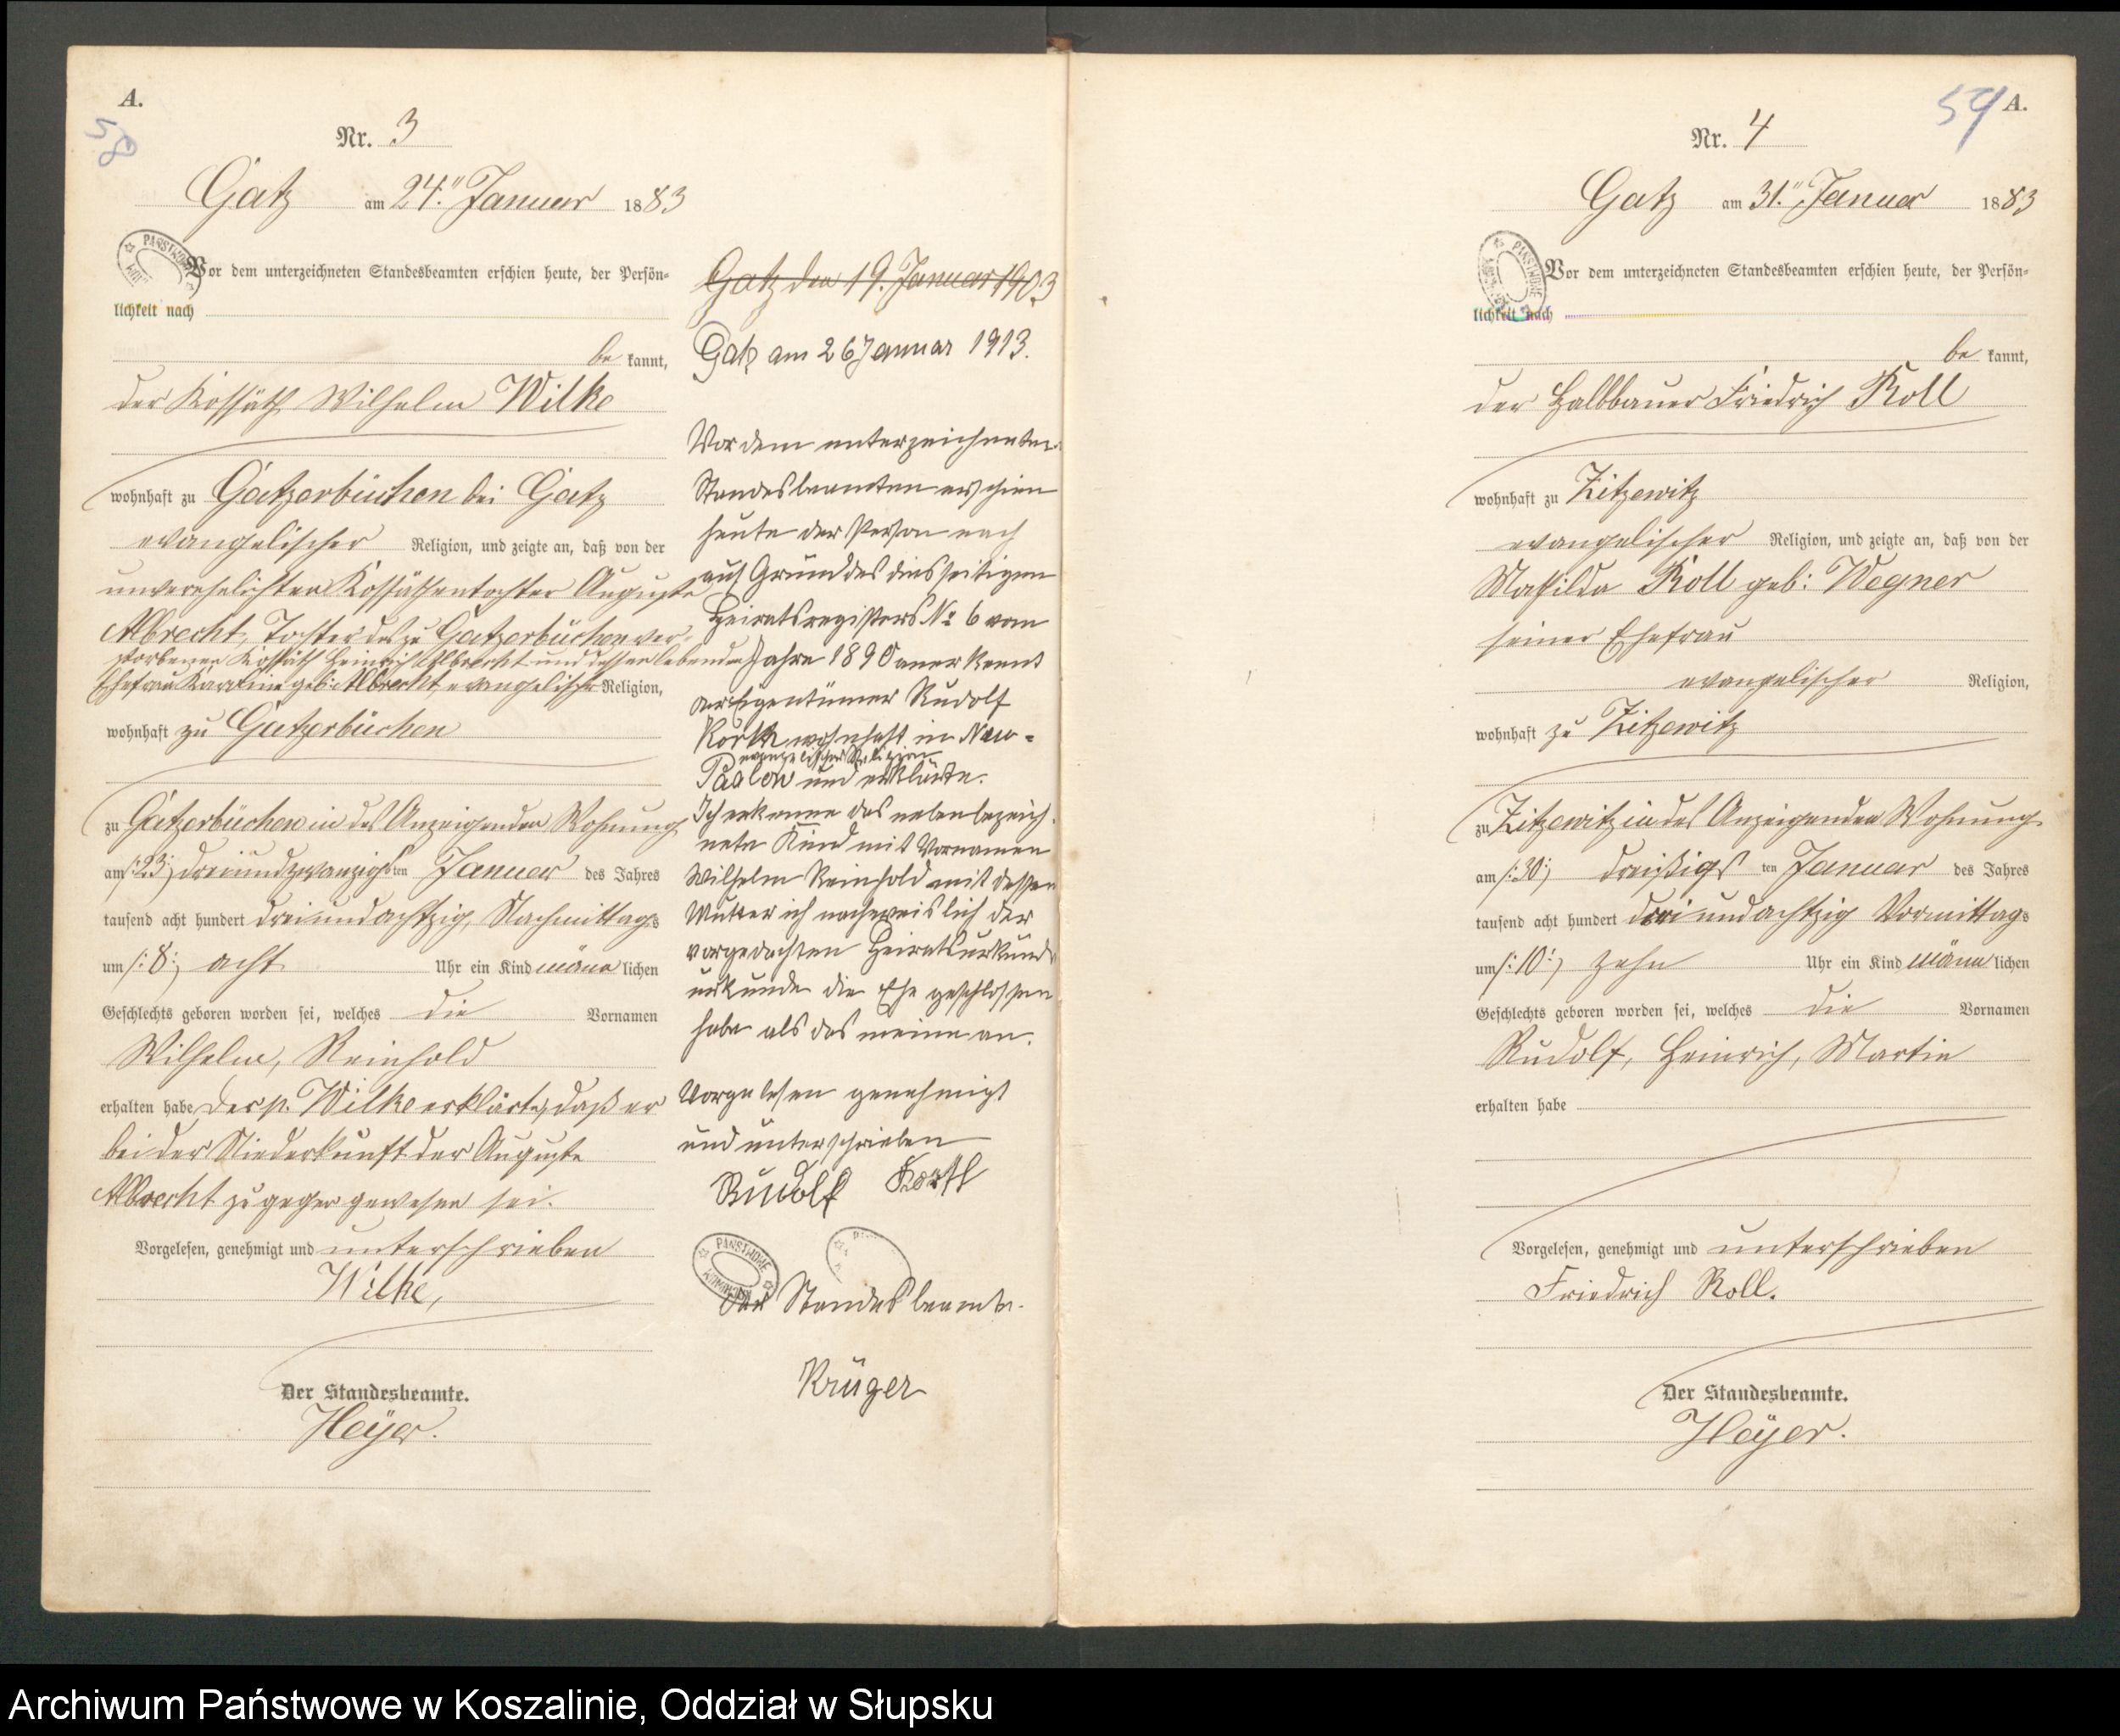 A.
58
Nr. 3
Gatz am 24.ⁿ Januar 1883
Vor dem unterzeichneten Standesbeamten erschien heute, der Persön-
lichkeit nach
be kannt,
der Kossäth Wilhelm Wilke
wohnhaft zu Gatzerbüchen bei Gatz
evangelischer Religion, und zeigte an, daß von der
unverehelichten Kossäthentochter Auguste
Albrecht, Tochter des zu Gatzerbüchen ver-
storbenen Kossäth Heinrich Albrecht und dessen lebenden
Ehefrau Karoline geb: Albrecht, evangelischer Religion,
wohnhaft zu Gatzerbüchen
zu Gatzerbüchen in des Anzeigenden Wohnung
am /:23:/ dreiundzwanzigsten Januar des Jahres
tausend acht hundert dreiundachtzig, Nachmittags
um /:8:/ acht Uhr ein Kind männlichen
Geschlechts geboren worden sei, welches die Vornamen
Wilhelm, Reinhold
erhalten habe, Der p. Wilke erklärte, daß er
bei der Niederkunft der Auguste
Albrecht zugegen gewesen sei.
Vorgelesen, genehmigt und unterschrieben
Wilke,
Der Standesbeamte.
Heÿer.
Gatz den 19. Januar 1903
Gatz am 26 Januar 1913.
Vor dem unterzeichneten
Standesbeamten erschien
heute der Person nach
auf Grund des diesseitigen
Heiratsregisters No 6 vom
Jahre 1890 anerkennt
der Eigentümer Rudolf
Korth, wohnhaft in Neu-
evangelischer Religion
Paalow und erklärte.
Ich erkenne das nebenbezeich-
nete Kind mit Vornamen
Wilhelm Reinhold mit dessen
Mutter ich nachweislich der
vorgedachten Heiratsurkunds
urkunde die Ehe geschlossen
habe als das meine an.
Vorgelesen genehmigt
und unterschrieben
Rudolf Korth
PAŃSTWOWE
Der Standesbeamte.
Krüger
59 A.
Nr. 4
Gatz am 31.ⁿ Januar 1883
Vor dem unterzeichneten Standesbeamten erschien heute, der Persön-
lichkeit nach
be kannt,
der Halbbauer Friedrich Roll
wohnhaft zu Zitzewitz
evangelischer Religion, und zeigte an, daß von der
Mathilde Roll geb: Wegner
seiner Ehefrau
evangelischer Religion,
wohnhaft zu Zitzewitz
zu Zitzewitz in des Anzeigenden Wohnung
am /:30:/ dreißigsten Januar des Jahres
tausend acht hundert dreiundachtzig Vormittags
um /:10:/ zehn Uhr ein Kind männlichen
Geschlechts geboren worden sei, welches die Vornamen
Rudolf, Heinrich, Martin
erhalten habe
Vorgelesen, genehmigt und unterschrieben
Friedrich Roll.
Der Standesbeamte.
Heÿer.
Archiwum Państwowe w Koszalinie, Oddział w Słupsku